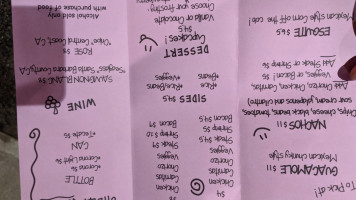 To Pick at!
GUACAMOLE $11
Mexican chunky style
NACHOS $11
Chips, cheese, black beans, tomatoes,
sour cream, jalapenos and cilantro)
Chorizo
Veggies, or Bacon
Add Steak Shrimp
ESQUITE $5
Mexican style Corn off the cob!
$4
Chicken
Carnitas
Chorizo
Veggies
Steak $4.5
Shrimp $5
Chicken
Carnitas
Chorizo
Veggies
Steak $9
Shrimp $10
Bacon $9
SIDES $4.5
Rice/Beans
Rice
Beans
DESSERT
Cupcakes!
$4.5
Vanilla or Chocolate
Choose your frosting
BOTTLE
Corona $6
Corona Light $6
CAN
Tecate $5
WINE
SAUVIGNON BLANC $9
Santa Barbara County, CA
ROSE $8
Central Coast, CA
Alcohol sold only
with purchase of food